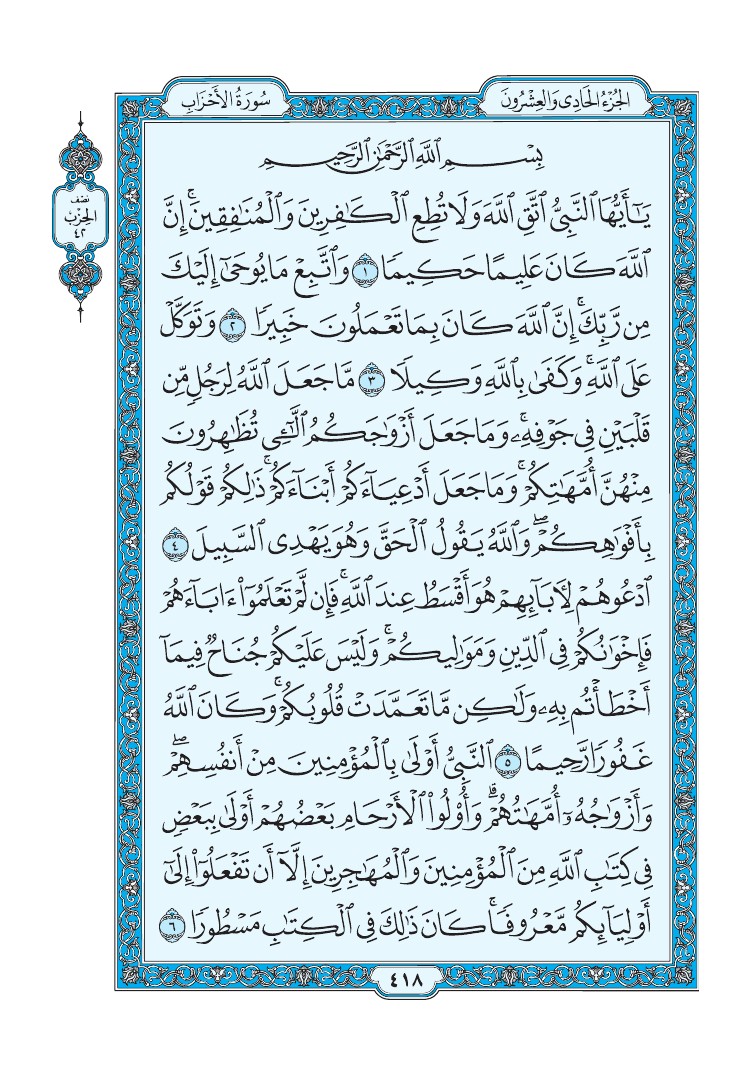 الجزء الحادي والعشرون
سورة الأحزاب
نصف
الحزب
٤٢
بِسْمِ ٱللَّهِ ٱلرَّحْمَٰنِ ٱلرَّحِيمِ
يَٰٓأَيُّهَا ٱلنَّبِيُّ ٱتَّقِ ٱللَّهَ وَلَا تُطِعِ ٱلْكَٰفِرِينَ وَٱلْمُنَٰفِقِينَۚ إِنَّ
ٱللَّهَ كَانَ عَلِيمًا حَكِيمًا ١ وَٱتَّبِعْ مَا يُوحَىٰٓ إِلَيْكَ
مِن رَّبِّكَۚ إِنَّ ٱللَّهَ كَانَ بِمَا تَعْمَلُونَ خَبِيرًا ٢ وَتَوَكَّلْ
عَلَى ٱللَّهِۚ وَكَفَىٰ بِٱللَّهِ وَكِيلًا ٣ مَّا جَعَلَ ٱللَّهُ لِرَجُلٍ مِّن
قَلْبَيْنِ فِي جَوْفِهِۦۚ وَمَا جَعَلَ أَزْوَٰجَكُمُ ٱلَّٰٓـِٔي تُظَٰهِرُونَ
مِنْهُنَّ أُمَّهَٰتِكُمْۚ وَمَا جَعَلَ أَدْعِيَآءَكُمْ أَبْنَآءَكُمْۚ ذَٰلِكُمْ قَوْلُكُم
بِأَفْوَٰهِكُمْۖ وَٱللَّهُ يَقُولُ ٱلْحَقَّ وَهُوَ يَهْدِي ٱلسَّبِيلَ ٤
ٱدْعُوهُمْ لِأٓبَآئِهِمْ هُوَ أَقْسَطُ عِندَ ٱللَّهِۚ فَإِن لَّمْ تَعْلَمُوٓا۟ ءَابَآءَهُمْ
فَإِخْوَٰنُكُمْ فِي ٱلدِّينِ وَمَوَٰلِيكُمْۚ وَلَيْسَ عَلَيْكُمْ جُنَاحٌ فِيمَآ
أَخْطَأْتُم بِهِۦ وَلَٰكِن مَّا تَعَمَّدَتْ قُلُوبُكُمْۚ وَكَانَ ٱللَّهُ
غَفُورًا رَّحِيمًا ٥ ٱلنَّبِيُّ أَوْلَىٰ بِٱلْمُؤْمِنِينَ مِنْ أَنفُسِهِمْۖ
وَأَزْوَٰجُهُۥٓ أُمَّهَٰتُهُمْۗ وَأُو۟لُوا۟ ٱلْأَرْحَامِ بَعْضُهُمْ أَوْلَىٰ بِبَعْضٍ
فِي كِتَٰبِ ٱللَّهِ مِنَ ٱلْمُؤْمِنِينَ وَٱلْمُهَٰجِرِينَ إِلَّآ أَن تَفْعَلُوٓا۟ إِلَىٰٓ
أَوْلِيَآئِكُم مَّعْرُوفًاۚ كَانَ ذَٰلِكَ فِي ٱلْكِتَٰبِ مَسْطُورًا ٦
٤١٨